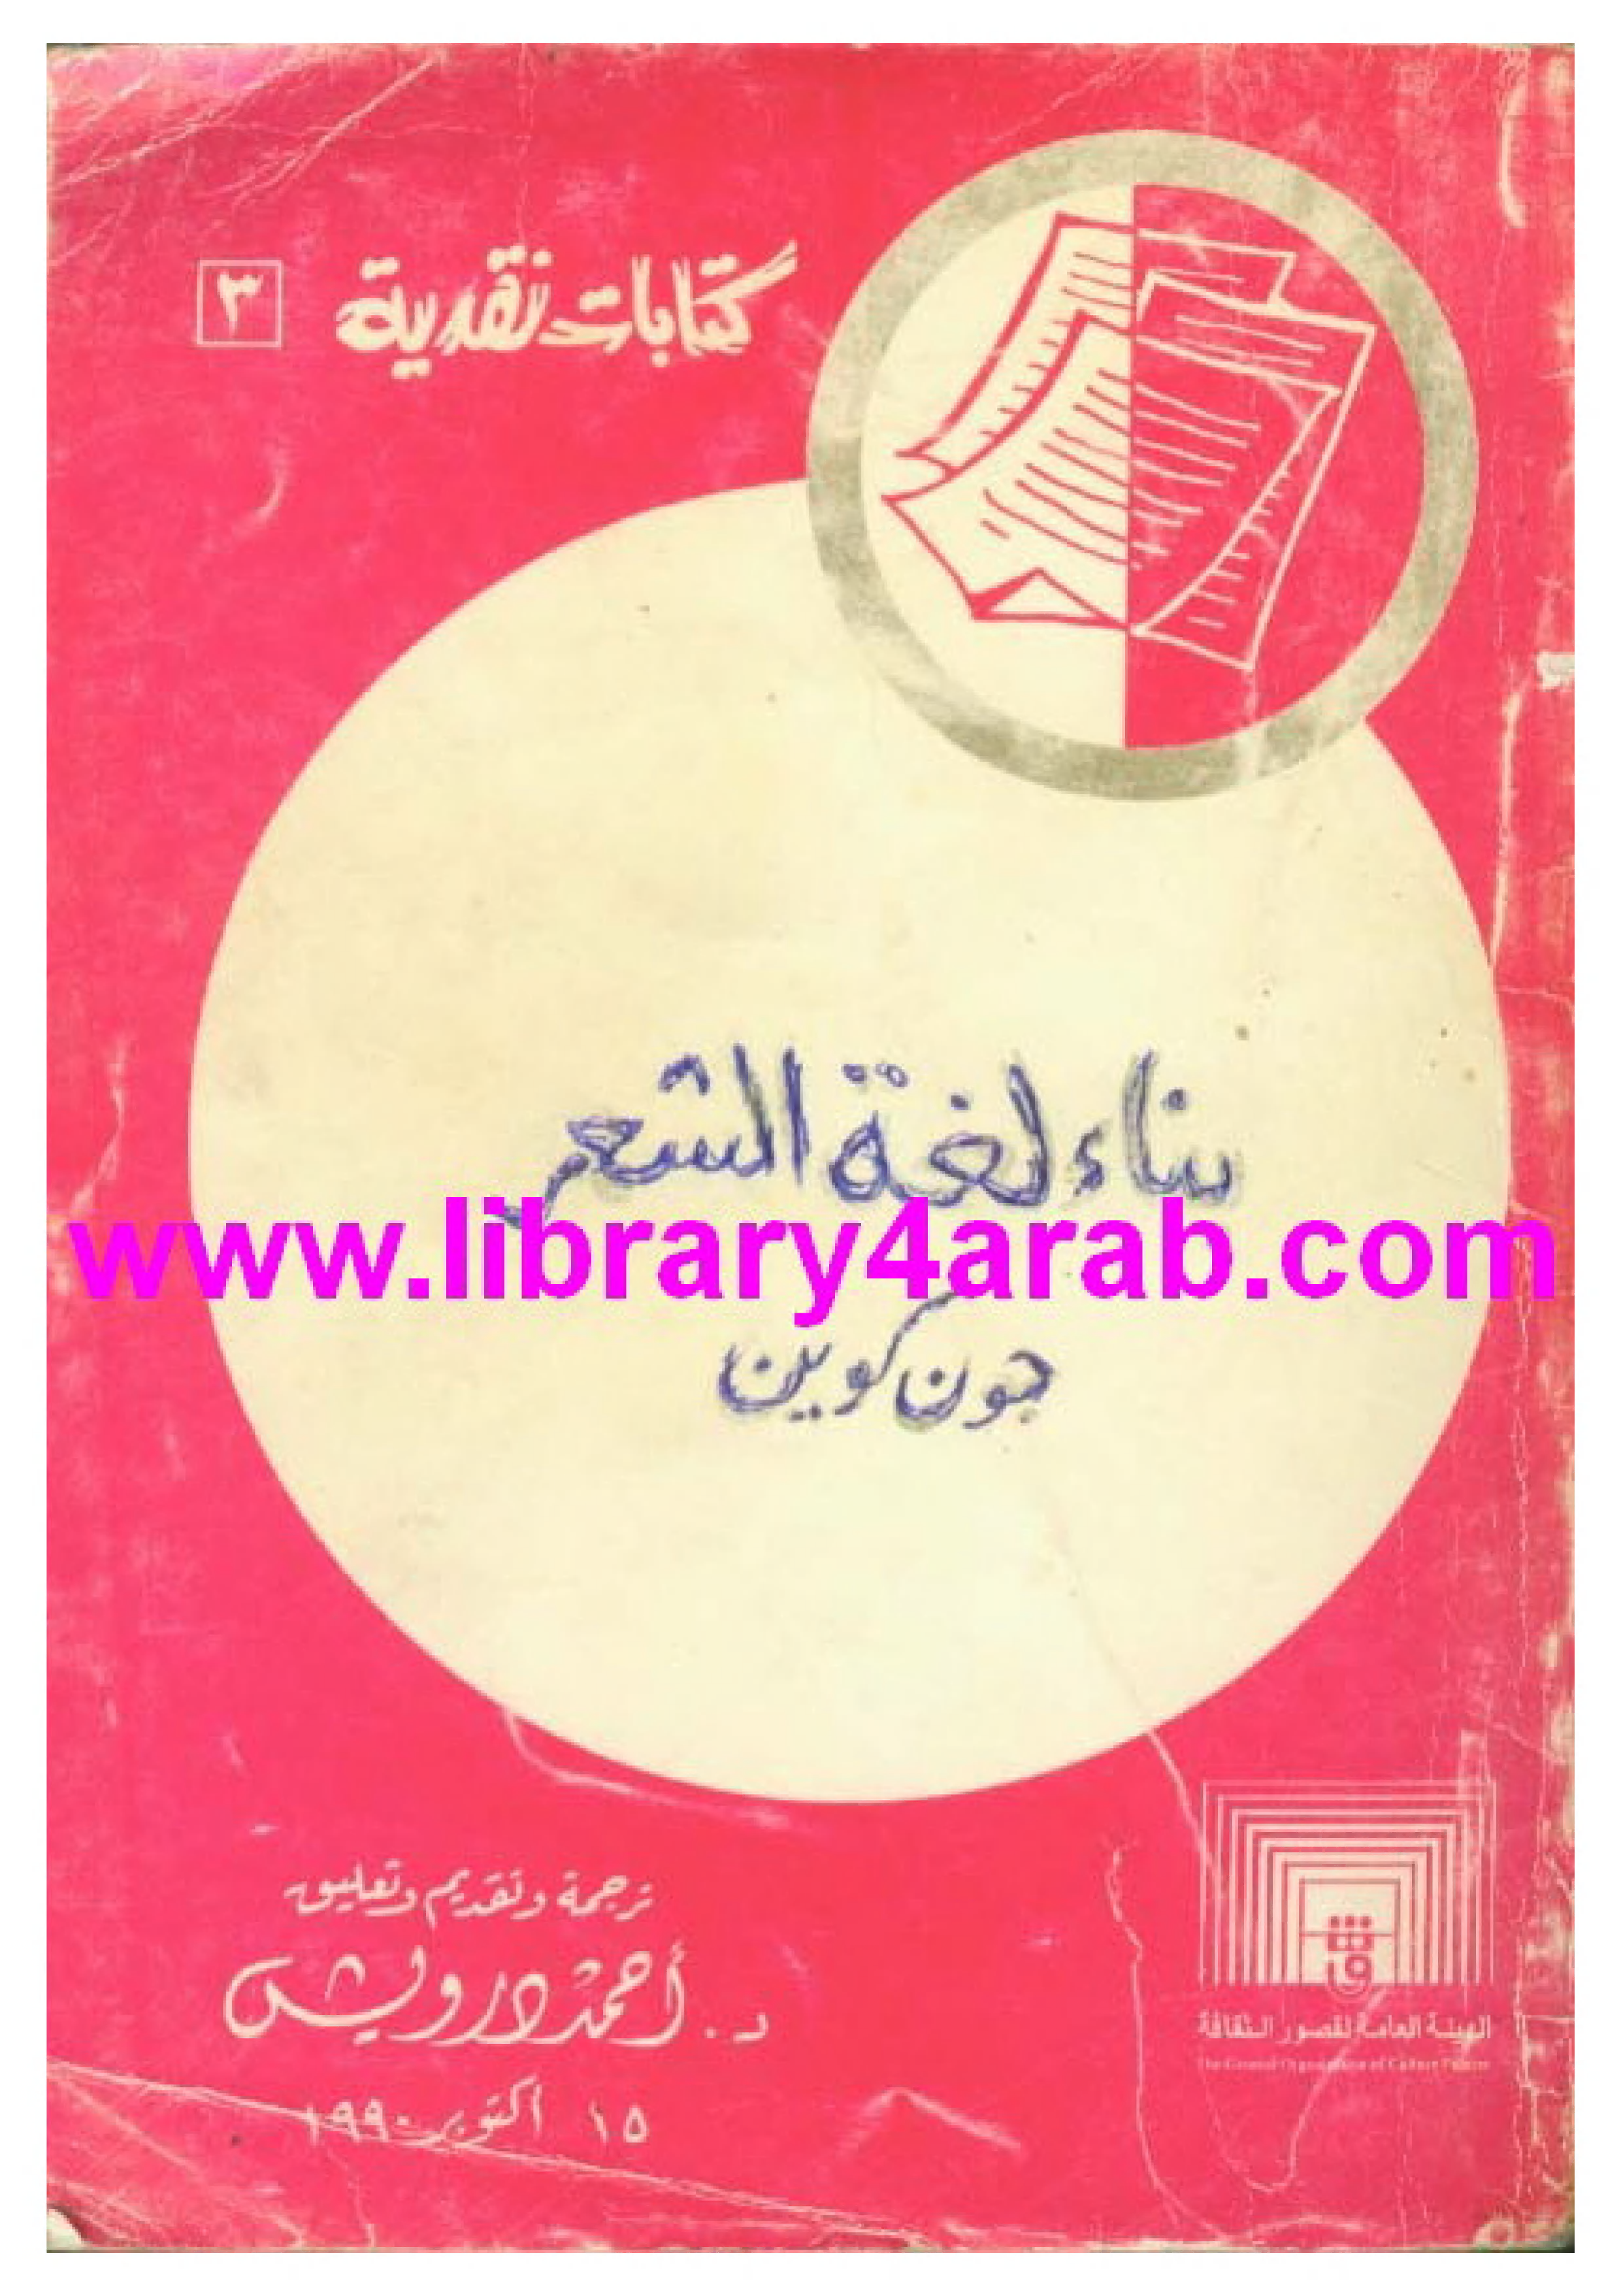 كتابات نقدية ٣
بناء لغة الشعر
www.library4arab.com
جون كوين
ترجمة وتقديم وتعليق
د. أحمد درويش
١٥ أكتوبر ١٩٩٠
ث
ق
الهيئة العامة لقصور الثقافة
The General Organization of Culture Palaces